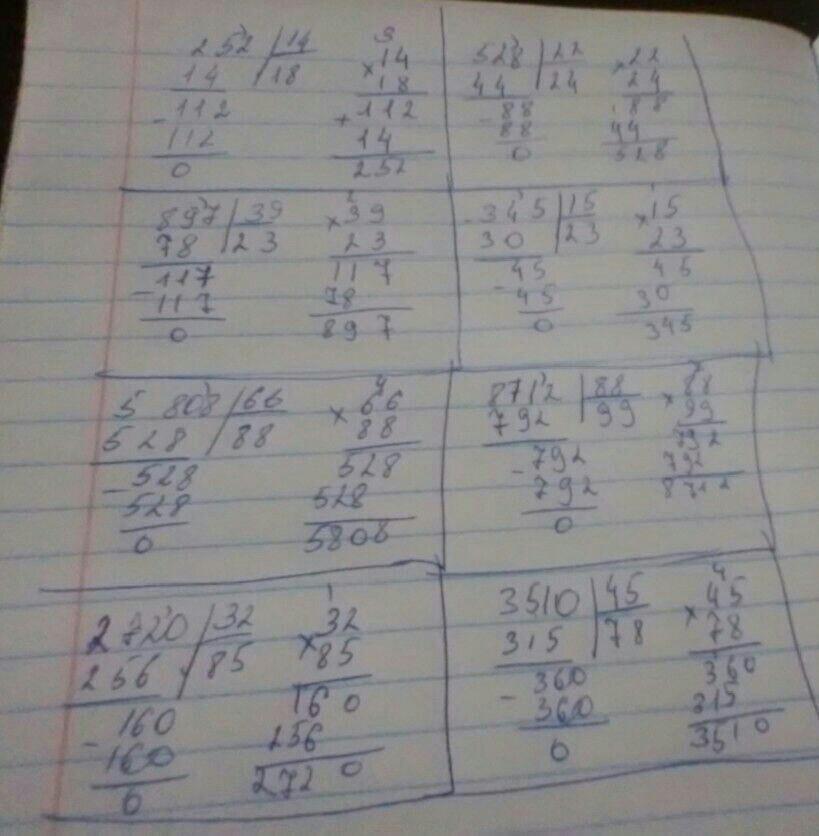 252 | 14
14 | 18
- 112
112
0
3
× 14
18
+ 112
14
252
528 | 22
44 | 24
- 88
88
0
× 22
24
88
44
528
897 | 39
78 | 23
- 117
117
0
2
× 39
23
117
78
897
- 345 | 15
30 | 23
- 45
45
0
1
× 15
23
45
30
345
5 808 | 66
528 | 88
- 528
528
0
4
× 66
88
528
528
5808
8712 | 88
792 | 99
- 792
792
0
7
× 88
99
792
792
8712
2 720 | 32
256 | 85
- 160
160
0
1
× 32
85
160
256
2720
3510 | 45
315 | 78
- 360
360
0
4
× 45
78
360
315
3510